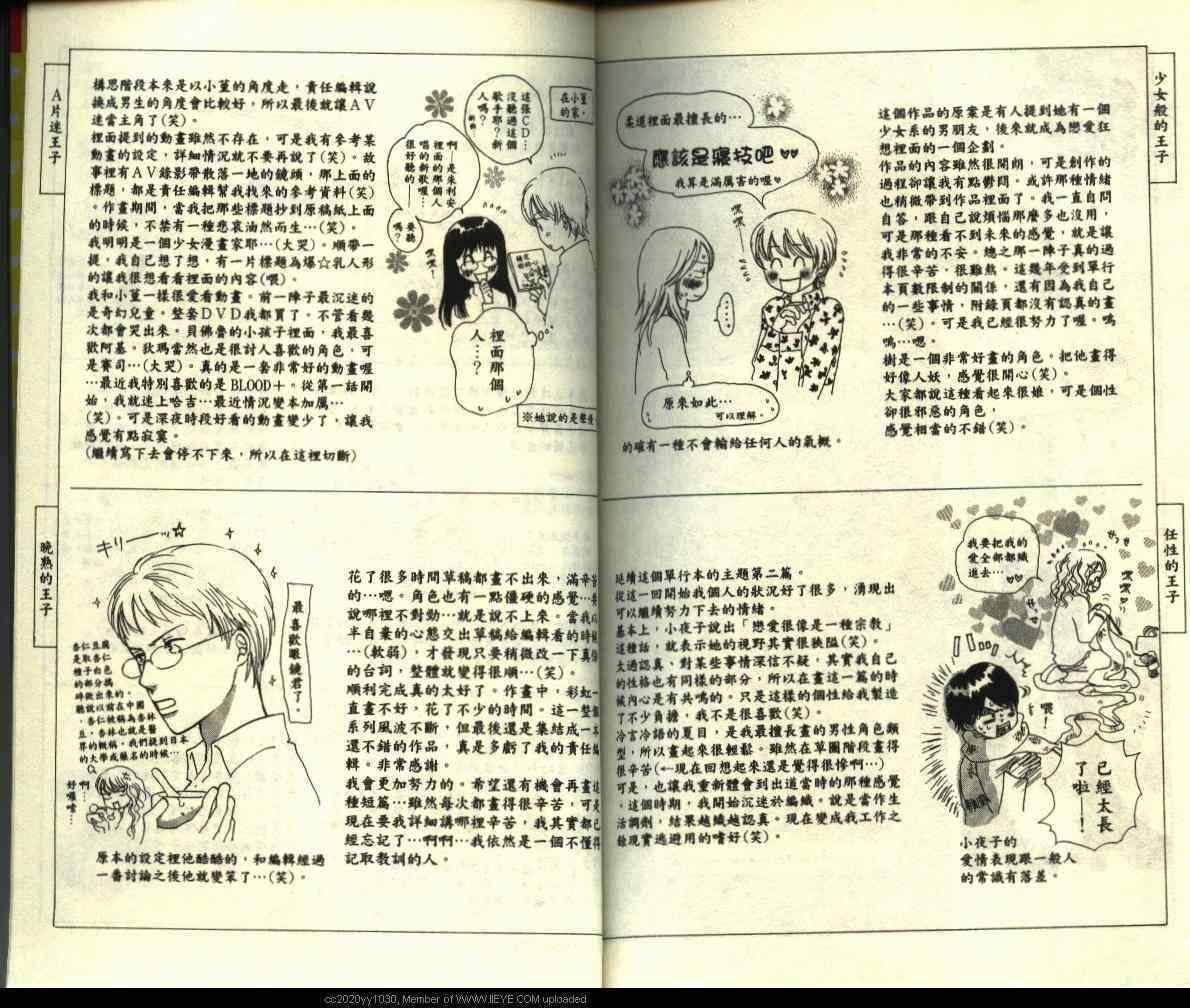 少女般的王子
這個作品的原案是有人提到她有一個
少女系的男朋友，後來就成為戀愛狂
想裡面的一個企劃。
作品的內容雖然很開朗，可是創作的
過程卻讓我有點鬱悶。或許那種情緒
也稍微帶到作品裡面了。我一直自問
自答，跟自己說煩惱那麼多也沒用，
可是那種看不到未來的感覺，就是讓
我非常的不安。總之那一陣子真的過
得很辛苦，很難熬。這幾年受到單行
本頁數限制的關係，還有因為我自己
的一些事情，附錄頁都沒有認真的畫
…(笑)。可是我已經很努力了喔。嗚
嗚…嗯。
樹是一個非常好畫的角色。把他畫得
好像人妖，感覺很開心(笑)。
大家都說這種看起來很娘，可是個性
卻很邪惡的角色，
感覺相當的不錯(笑)。
柔道裡面最擅長的…
應該是寢技吧♥♥
我算是滿厲害的喔♥
嘿嘿…
……
原來如此…
可以理解。
的確有一種不會輸給任何人的氣概。
任性的王子
延續這個單行本的主題第二篇。
從這一回開始我個人的狀況好了很多，湧現出
可以繼續努力下去的情緒。
基本上，小夜子說出「戀愛很像是一種宗教」
這種話，就表示她的視野其實很狹隘(笑)。
太過認真、對某些事情深信不疑，其實我自己
的性格也有同樣的部分，所以在畫這一篇的時
候內心是有共鳴的。只是這樣的個性給我製造
了不少負擔，我不是很喜歡(笑)。
冷言冷語的夏目，是我最擅長畫的男性角色類
型，所以畫起來很輕鬆。雖然在草圖階段畫得
很辛苦(←現在回想起來還是覺得很慘啊…)
可是，也讓我重新體會到出道當時的那種感覺
。這個時期，我開始沉迷於編織。說是當作生
活調劑，結果越織越認真。現在變成我工作之
餘現實逃避用的嗜好(笑)。
我要把我的
愛全部都織
進去…♥♥
嘿嘿
喂！
已經太長
了啦——！
小夜子的
愛情表現跟一般人
的常識有落差。
A片迷王子
構思階段本來是以小菫的角度走，責任編輯說
換成男生的角度會比較好，所以最後就讓AV
迷當主角了(笑)。
裡面提到的動畫雖然不存在，可是我有參考某
動畫的設定，詳細情況就不要再說了(笑)。故
事裡有AV錄影帶散落一地的鏡頭，那上面的
標題，都是責任編輯幫我找來的參考資料(笑)
。作畫期間，當我把那些標題抄到原稿紙上面
的時候，不禁有一種悲哀油然而生…(笑)。
我明明是一個少女漫畫家耶…(大哭)。順帶一
提，我自己想了想，有一片標題為爆☆乳人形
的讓我很想看看裡面的內容(喂)。
我和小菫一樣很愛看動畫。前一陣子最沉迷的
是奇幻兒童。整套DVD我都買了。不管看幾
次都會哭出來。貝佛魯的小孩子裡面，我最喜
歡阿基。狄瑪當然也是很討人喜歡的角色，可
是賽司…(大哭)。真的是一套非常好的動畫喔
…最近我特別喜歡的是BLOOD+。從第一話開
始，我就迷上哈吉…最近情況變本加厲…
(笑)。可是深夜時段好看的動畫變少了，讓我
感覺有點寂寞。
(繼續寫下去會停不下來，所以在這裡切斷)
在小菫
的家。
這張CD…
沒聽過這個
歌手耶？新
人嗎？
啊，是朱利安
裡面的那個人
唱的新歌喔…
很好聽的——
要聽
嗎？
嘿嘿！
裡面那個
人…？
※她說的是聲優
晚熟的王子
花了很多時間草稿都畫不出來，滿辛苦
的…嗯。角色也有一點僵硬的感覺…
說哪裡不對勁…就是說不上來。當我以
半自棄的心態交出草稿給編輯看的時候
…(軟弱)，才發現只要稍微改一下真
的台詞，整體就變得很順…(笑)。
順利完成真的太好了。作畫中，彩虹一
直畫不好，花了不少的時間。這一整個
系列風波不斷，但最後還是集結成一
還不錯的作品，真是多虧了我的責任編
輯。非常感謝。
我會更加努力的。希望還有機會再畫這
種短篇…雖然每次都畫得很辛苦，可是
現在要我詳細講哪裡辛苦，我其實都已
經忘記了…啊啊…我依然是一個不懂得
記取教訓的人。
キリーッ☆
最喜歡眼鏡君了。
杏仁豆腐
是取杏仁
種子白色
的部分搗
碎做出來的。
聽說以前在中國
，杏仁被稱為杏林
豆，杏林也就是醫
界的概稱。我們提到日本
的大學或藥名的時候…
啊
好噁唷…
原本的設定裡他酷酷的，和編輯經過
一番討論之後他就變笨了…(笑)。
cc2020yy1030, Member of WWW.IIEYE.COM uploaded